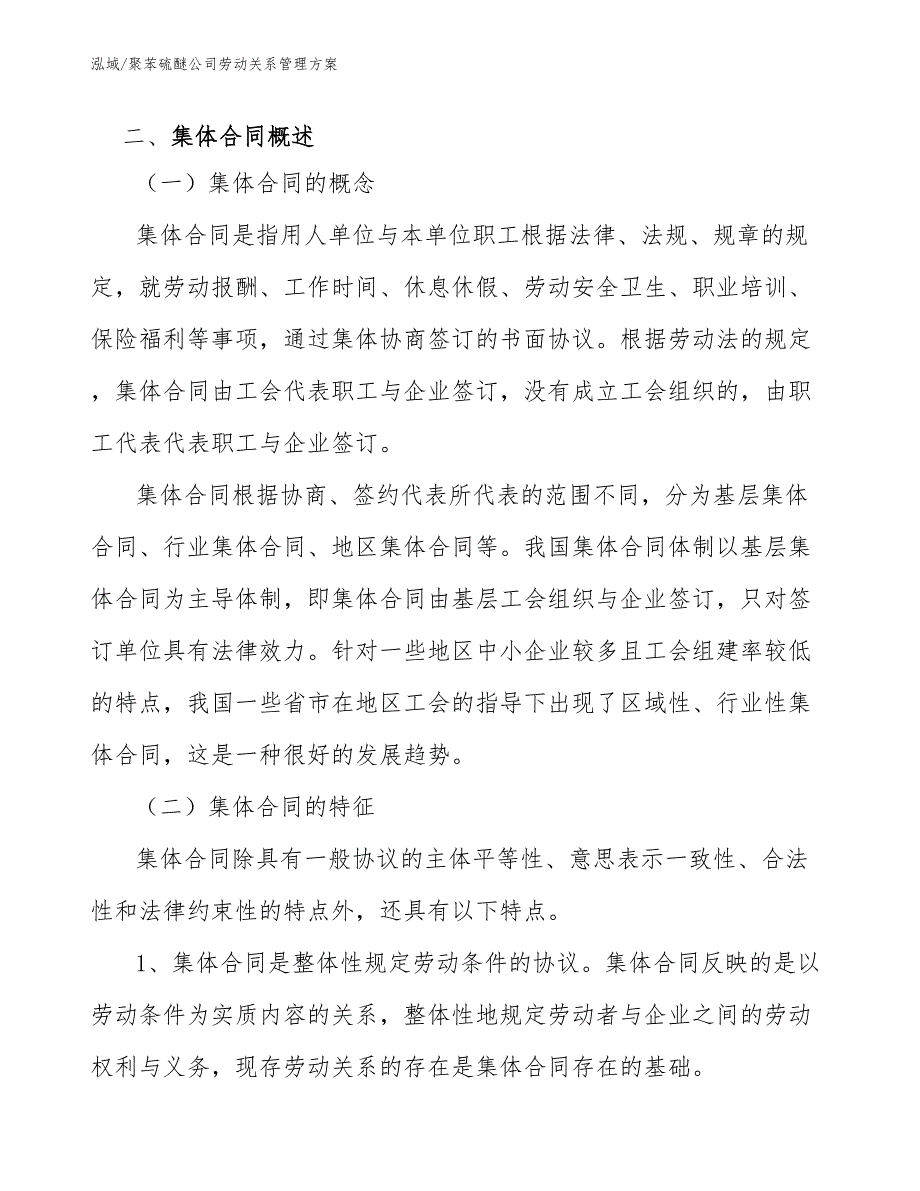 泓域/聚苯硫醚公司劳动关系管理方案
二、集体合同概述
（一）集体合同的概念
集体合同是指用人单位与本单位职工根据法律、法规、规章的规
定，就劳动报酬、工作时间、休息休假、劳动安全卫生、职业培训、
保险福利等事项，通过集体协商签订的书面协议。根据劳动法的规定
，集体合同由工会代表职工与企业签订，没有成立工会组织的，由职
工代表代表职工与企业签订。
集体合同根据协商、签约代表所代表的范围不同，分为基层集体
合同、行业集体合同、地区集体合同等。我国集体合同体制以基层集
体合同为主导体制，即集体合同由基层工会组织与企业签订，只对签
订单位具有法律效力。针对一些地区中小企业较多且工会组建率较低
的特点，我国一些省市在地区工会的指导下出现了区域性、行业性集
体合同，这是一种很好的发展趋势。
（二）集体合同的特征
集体合同除具有一般协议的主体平等性、意思表示一致性、合法
性和法律约束性的特点外，还具有以下特点。
1、集体合同是整体性规定劳动条件的协议。集体合同反映的是以
劳动条件为实质内容的关系，整体性地规定劳动者与企业之间的劳动
权利与义务，现存劳动关系的存在是集体合同存在的基础。